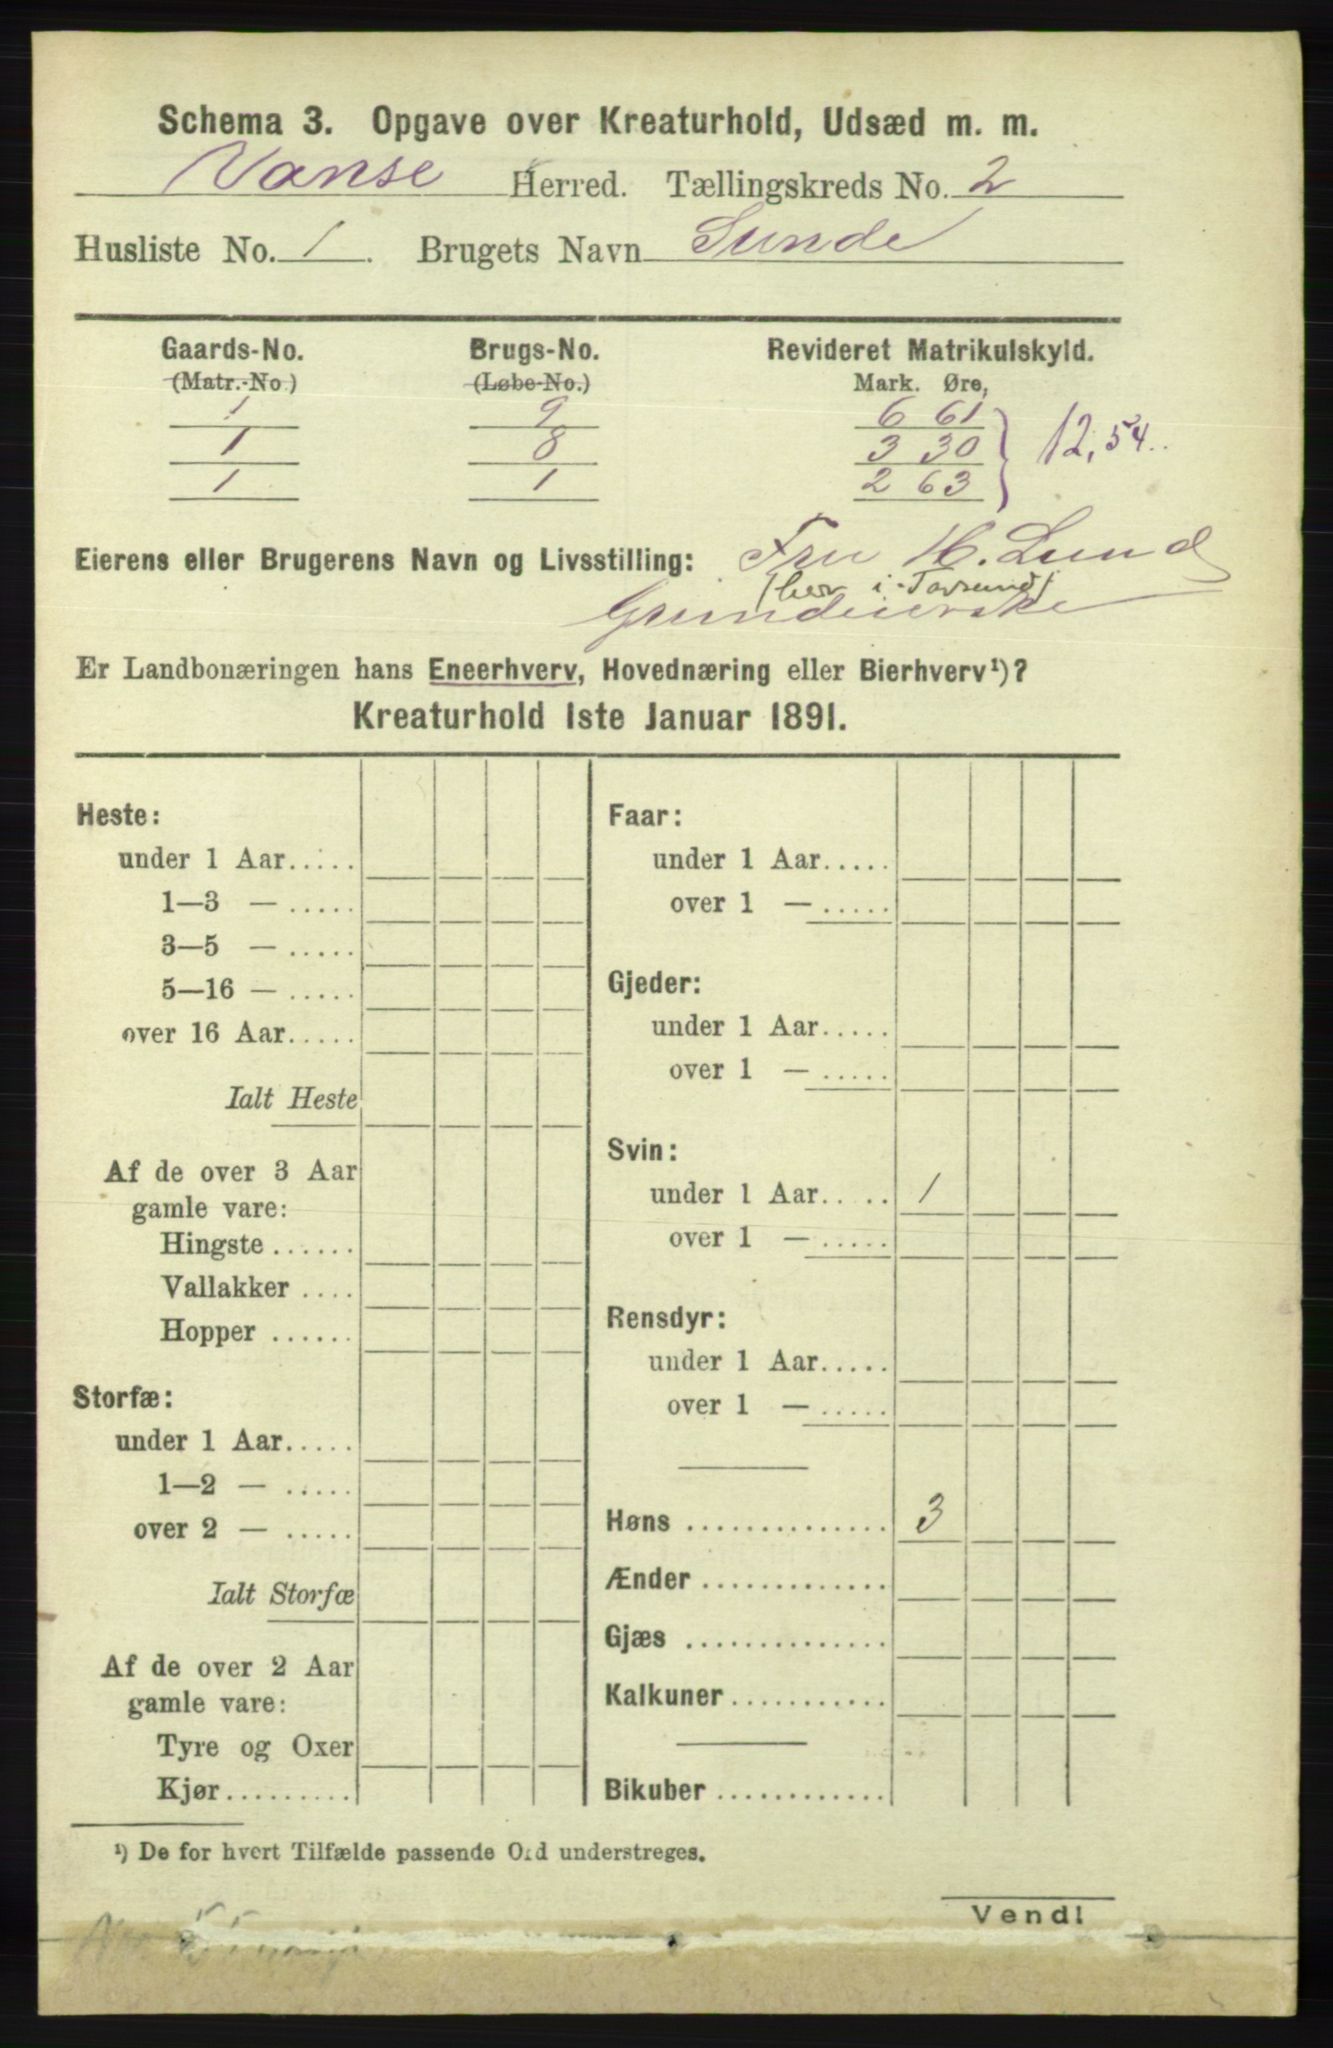 Schema 3. Opgave over Kreaturhold, Udsæd m. m.
Vanse Herred. Tællingskreds No. 2
Husliste No. 1. Brugets Navn Sunde
Gaards-No. Brugs-No. Revideret Matrikulskyld.
(Matr.-No) (Løbe-No.) Mark. Øre,
1 9 6 61
1 8 3 30 } 12,54
1 1 2 63
Eierens eller Brugerens Navn og Livsstilling: Fru H. Lund
(her i Farsund)
Grundeierske
Er Landbonæringen hans Eneerhverv, Hovednæring eller Bierhverv¹)?
Kreaturhold 1ste Januar 1891.
Heste:
under 1 Aar.....
1—3 — .....
3—5 — .....
5—16 — .....
over 16 Aar.....
Ialt Heste
Af de over 3 Aar
gamle vare:
Hingste ......
Vallakker ....
Hopper ......
Storfæ:
under 1 Aar.....
1—2 — .....
over 2 — .....
Ialt Storfæ
Af de over 2 Aar
gamle vare:
Tyre og Oxer
Kjør.........
Faar:
under 1 Aar.....
over 1 — .....
Gjeder:
under 1 Aar.....
over 1 — .....
Svin:
under 1 Aar..... 1
over 1 — .....
Rensdyr:
under 1 Aar.....
over 1 — .....
Høns .............. 3
Ænder .............
Gjæs ..............
Kalkuner ...........
Bikuber ............
¹) De for hvert Tilfælde passende Ord understreges.
Vend!